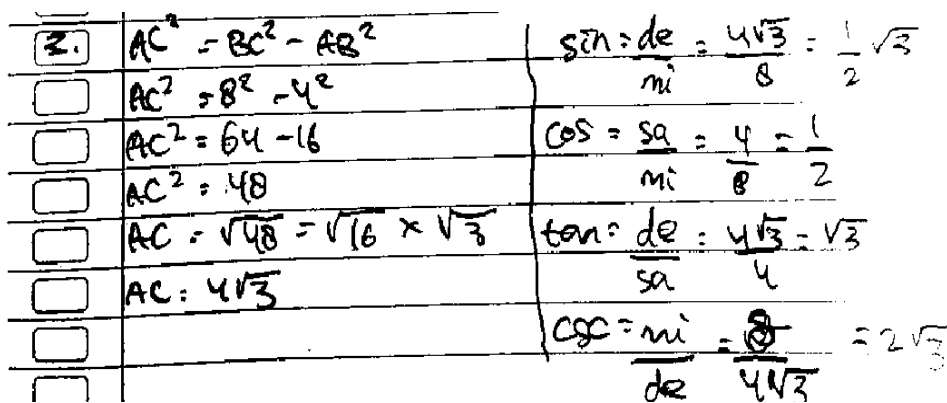 2.
AC² = BC² - AB²
AC² = 8² - 4²
AC² = 64 - 16
AC² = 48
AC = √48 = √16 × √3
AC = 4√3
sin = de/mi = 4√3/8 = 1/2 √3
cos = sa/mi = 4/8 = 1/2
tan = de/sa = 4√3/4 = √3
csc = mi/de = 8/4√3 = 2√3